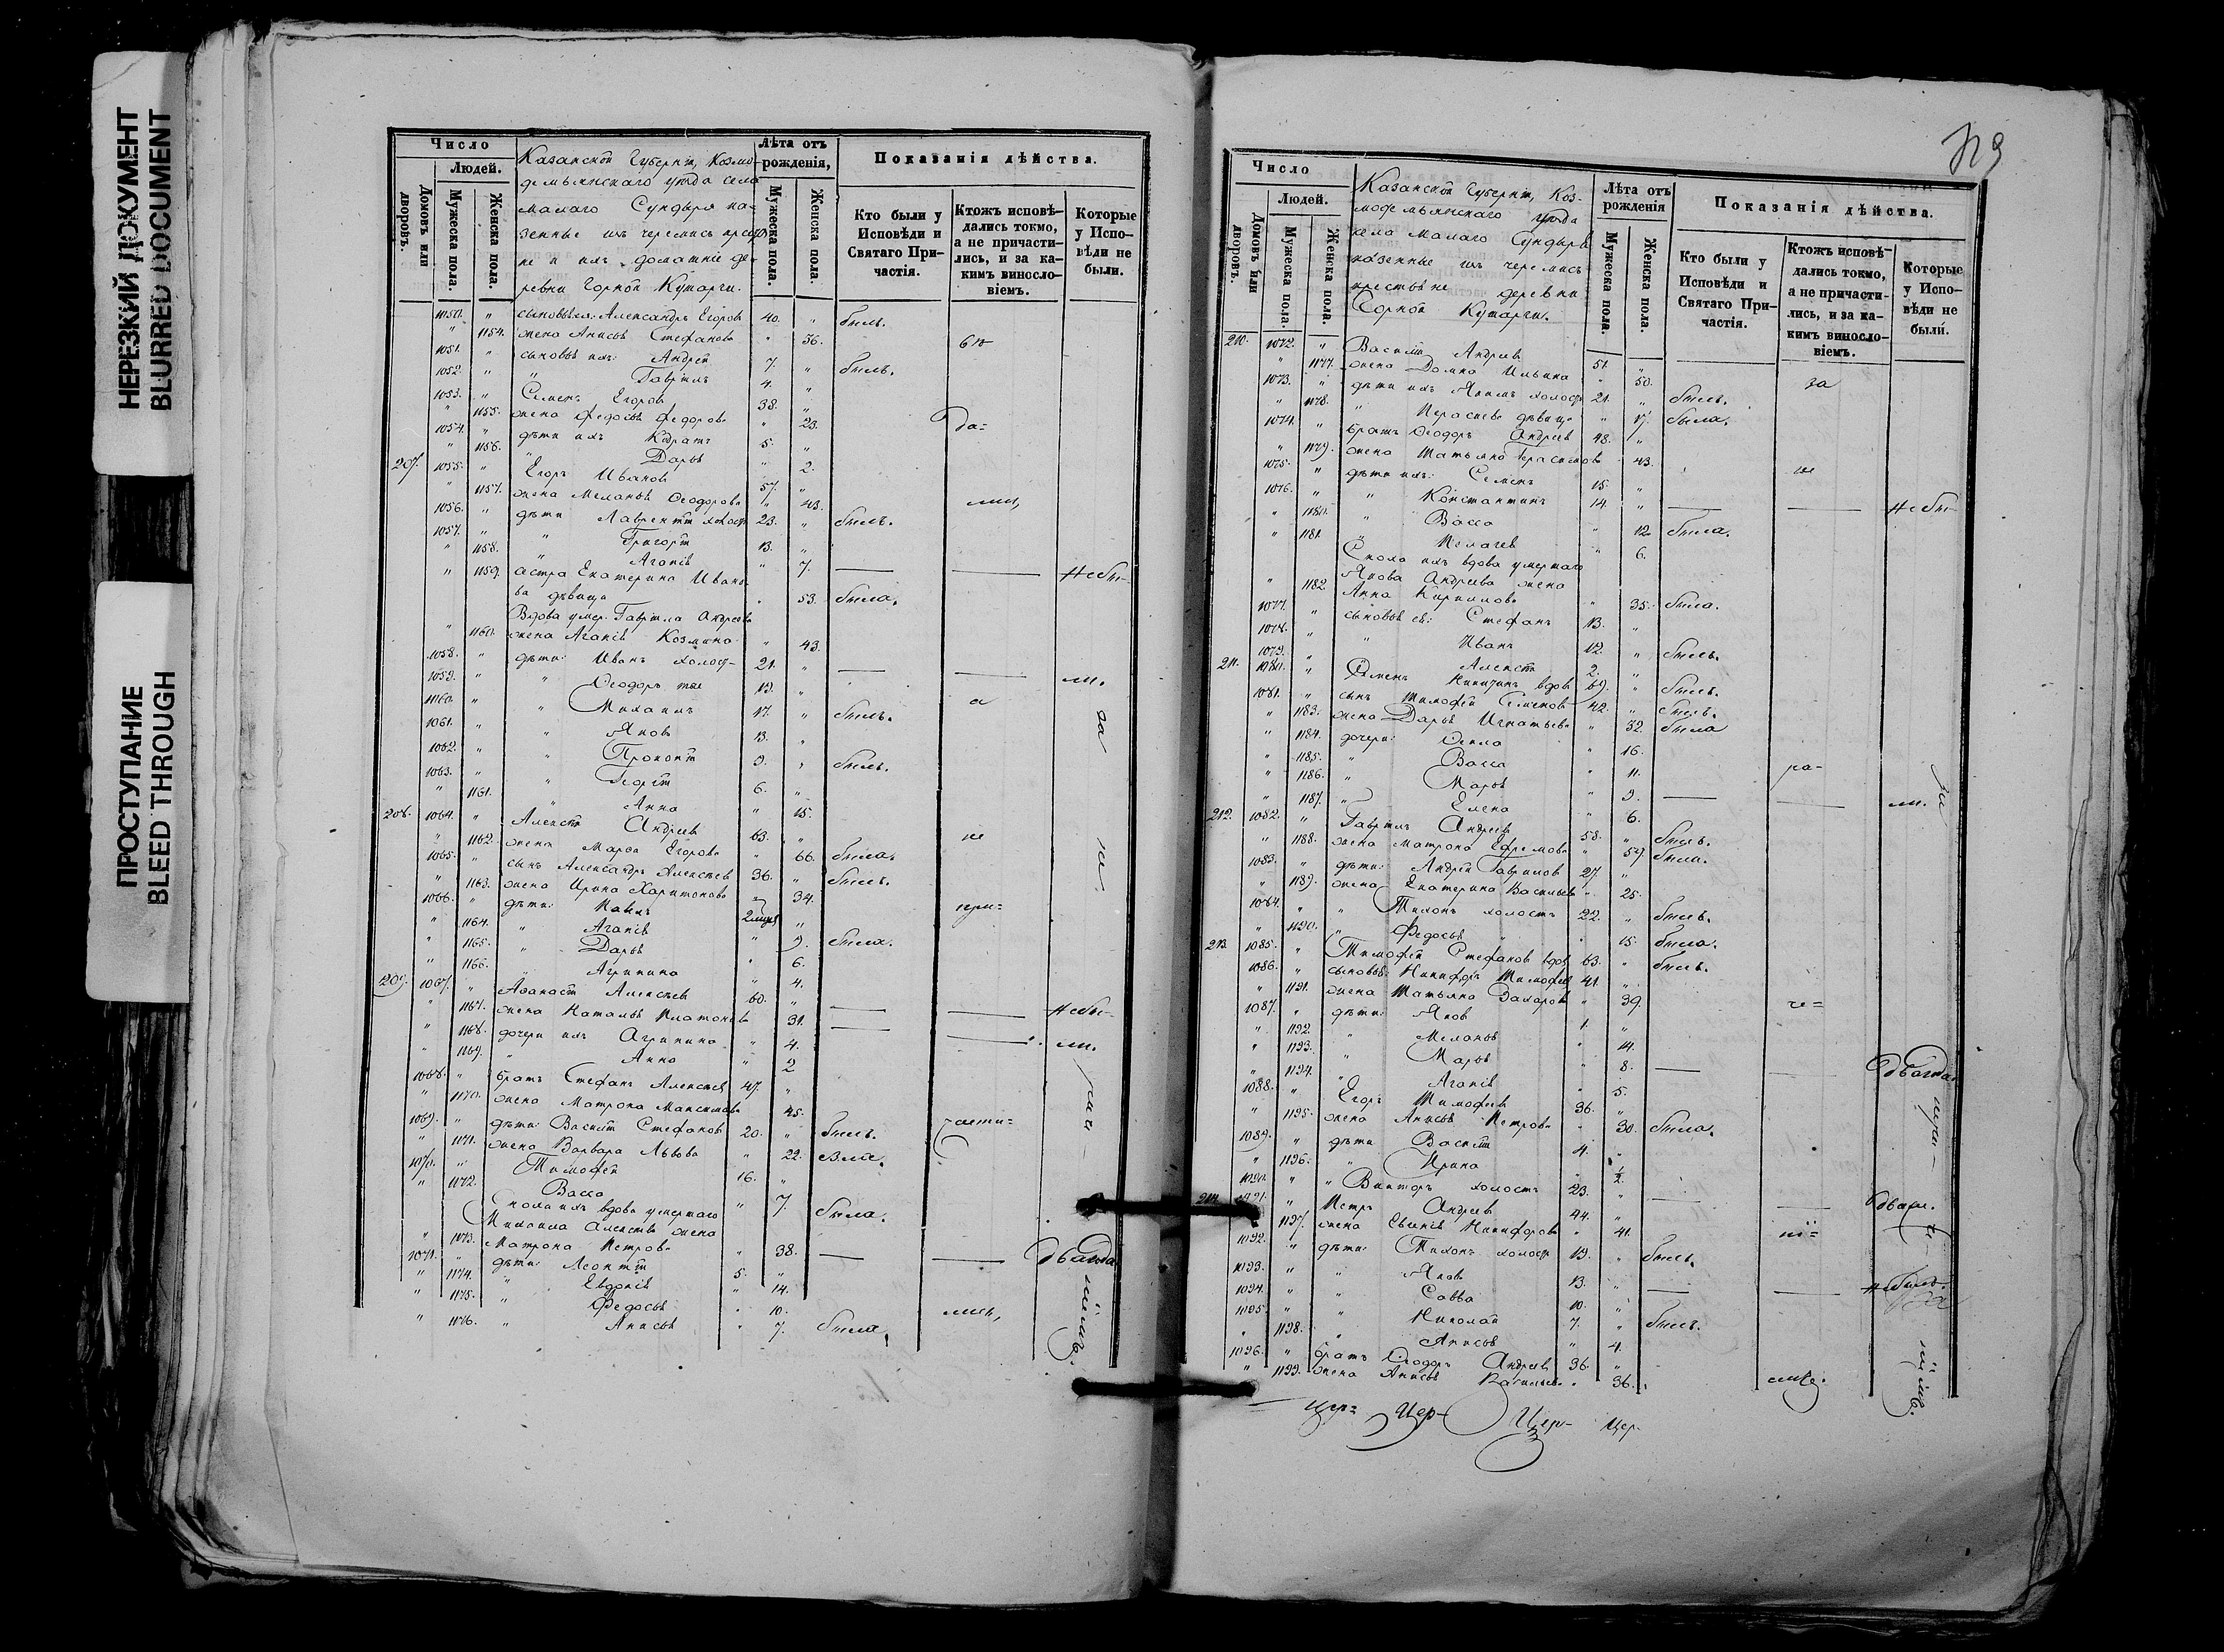 НЕРЕЗКИЙ ДОКУМЕНТ
BLURRED DOCUMENT
ПРОСТУПАНИЕ
BLEED THROUGH
Число
Людей.
Домовъ или дворовъ.
Мужеска пола.
Женска пола.
Казанской Губерніи, Козмо-
демьянскаго уѣзда села
Малаго Сундыря ка-
зенные изъ черемисъ
и ихъ домашніе де-
ревни Горной Кумарги.
Лѣта отъ рожденія,
Мужеска пола.
Женска пола.
Показанія дѣйства.
Кто были у Исповѣди и Святаго При-частія.
Ктожъ исповѣ-дались токмо, а не причасти-лись, и за ка-кимъ виносло-віемъ.
Которые у Испо-вѣди не были.
1050. " сыновья: Александръ Егоровъ 40. " былъ.
" 1154. жена Анисья Стефанова " 36.
1051. " сыновья ихъ: Андрей 7. " былъ.
1052. " " Гавріилъ 4. "
1053. " Семенъ Егоровъ 38. "
" 1155. жена Федосья Федорова " 23.
1054. " дѣти ихъ 5. "
" 1156. " Дарья " 2.
207. 1055. " Егоръ Ивановъ 57. "
" 1157. жена Меланья Ѳеодорова " 43.
1056. " дѣти Лаврентій холостъ 23. " былъ.
1057. " " Григорій 13. "
" 1158. " Агапія " 7.
" 1159. сестра Екатерина Ивано-
ва дѣвица " 53. была.
Вдова умер. Гавріила Андреева
" 1160. жена Агапія Козмина " 43.
1058. " дѣти: Иванъ холост- 21. "
1059. " " Ѳеодоръ 19. "
1060. " " Михаилъ 17. " былъ.
1061. " " Яковъ 13. "
1062. " " Прокопій 9. " былъ.
1063. " " Георгій 6. "
" 1161. " Анна " 15.
208. 1064. " Алексѣй Андреевъ 63. "
" 1162. жена Марѳа Егорова " 66. была.
1065. " сынъ Александръ Алексѣевъ 36. " былъ.
" 1163. жена Ирина Харитонова " 34.
1066. " дѣти: Павелъ "
" 1164. " Агапія " 9. была.
" 1165. " Дарья " 6.
" 1166. " Агрипина " 4.
209. 1067. " Аѳанасій Алексѣевъ 60. "
" 1167. жена Наталья Платонова " 31. Не бы-
" 1168. дочери ихъ Агрипина " 4. ли.
" 1169. " Анна " 2
1068. " братъ Стефанъ Алексѣевъ 47. "
" 1170. жена Матрона Максимова " 45.
1069. " дѣти: Василій Стефановъ 20. " былъ.
" 1171. жена Варвара Львова " 22.
1070. " Тимофей 16. "
" 1172. Васса " 7. была.
Снола ихъ вдова умершаго
Михаила Алексѣева жена
" 1173. Матрона Петрова " 38.
1071. " дѣти: Леонтій 5. "
" 1174. " Евдокія " 14.
" 1175. " Федосья " 10.
" 1176. " Анисья " 7. была.
Число
Людей.
Домовъ или дворовъ.
Мужеска пола.
Женска пола.
Казанской Губерніи, Коз-
модемьянскаго уѣзда
села Малаго Сундыря
казенные изъ черемисъ
крестьяне деревни
Горной Кумарги.
Лѣта отъ рожденія
Мужеска пола.
Женска пола.
Показанія дѣйства.
Кто были у Исповѣди и Святаго При-частія.
Ктожъ исповѣ-дались токмо, а не причасти-лись, и за ка-кимъ виносло-віемъ.
Которые у Испо-вѣди не были.
210. 1072. " Василій Андреевъ 51. "
" 1177. жена Домна Ильина " 50. за
1073. " дѣти ихъ Якимъ холостъ 21. " былъ.
" 1178. " дѣвица " 17. была.
1074. " братъ Ѳеодоръ Андреевъ 48. "
" 1179. жена Татьяна Герасимова " 43.
1075. " дѣти ихъ: Семенъ 15. "
1076. " " Константинъ 14. " Не бы-
" 1180. " Васса " 12. была.
" 1181. " Пелагея " 6.
Снола ихъ вдова умершаго
Якова Андреева жена
" 1182. Анна Кирилова " 35. была.
1077. " сыновья ея: Стефанъ 13. "
1078. " " Иванъ 12. " былъ.
1079. " Алексѣй 2. "
211. 1080. " Семенъ Никитинъ вдовъ 69. " былъ.
1081. " сынъ Тимофей Семеновъ 42. " былъ.
" 1183. жена Дарья Игнатьева " 32. была
" 1184. дочери: " 16.
" 1185. " Васса " 11. ра-
" 1186. " Марья " 9. ли.
" 1187. " Елена " 6.
212. 1082. " Гавріилъ Андреевъ 58. " былъ.
" 1188. жена Матрона Ефремова " 59. была.
1083. " дѣти: Андрей Гавриловъ 27. "
" 1189. жена Екатерина Васильева " 25.
1084. " " Тихонъ холостъ 22. " былъ.
" 1190. " Федосья " 15. была.
213. 1085. " Тимофей Стефановъ вдовъ 63. " былъ.
1086. " сыновья: Никифоръ Тимофеевъ 41. "
" 1191. жена Татьяна Захарова " 39.
1087. " дѣти: Яковъ 1. "
" 1192. " Меланья " 14.
" 1193. " Марья " 8.
" 1194. " Агапія " 5.
1088. " Егоръ Тимофеевъ 36. "
" 1195. жена Анисья Петрова " 30. была.
1089. " дѣти Василій 4. "
" 1196. " Ирина " ½.
1090. " " Викторъ холостъ 23. "
214. 1091. " Петръ Андреевъ 44. "
" 1197. жена Никифорова " 41.
1092. " дѣти: Тихонъ холостъ 19. " былъ.
1093. " " Яковъ 13. "
1094. " " Савва 10. "
1095. " " Николай 7. " былъ.
" 1198. " Анисья " 4.
1096. " братъ Ѳеодоръ Андреевъ 36. "
" 1199. жена Анисья Васильева " 36.